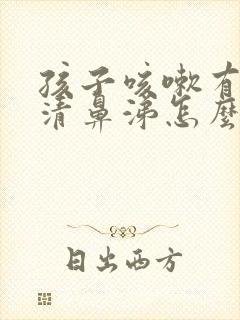 孩子咳嗽有
清鼻涕怎麼
日出西方